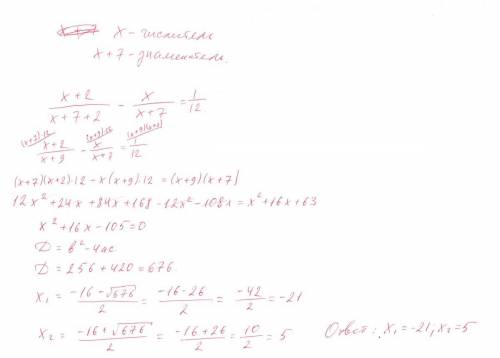 x - числитель
x+7 - знаменатель.
(x+2)/(x+7+2) - x/(x+7) = 1/12
(x+2)/(x+9) - x/(x+7) = 1/12
(x+7)(x+2)·12 - x(x+9)·12 = (x+9)(x+7)
12x² + 24x + 84x + 168 - 12x² - 108x = x² + 16x + 63
x² + 16x - 105 = 0
D = b² - 4ac
D = 256 + 420 = 676
x₁ = (-16 - √676)/2 = (-16 - 26)/2 = -42/2 = -21
x₂ = (-16 + √676)/2 = (-16 + 26)/2 = 10/2 = 5
Ответ: x₁ = -21, x₂ = 5